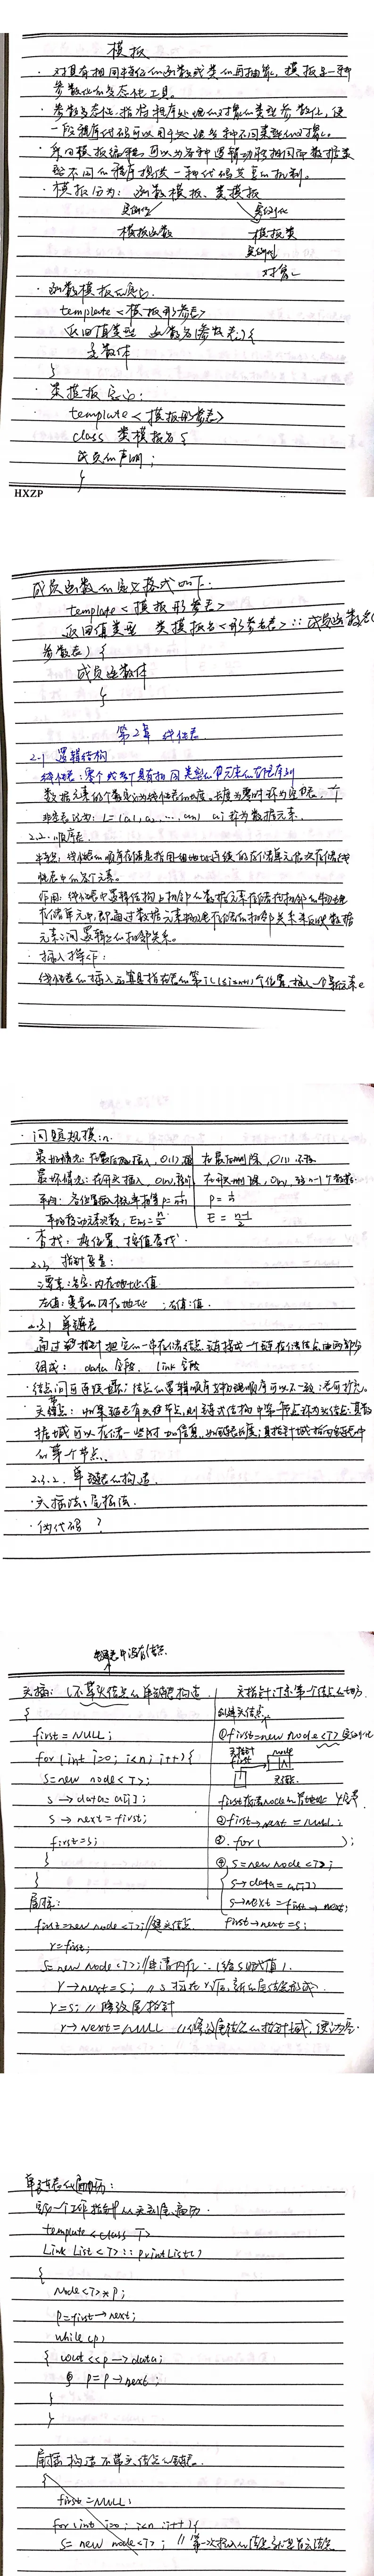 模板
· 对具有相同特性的函数或类的再抽象, 模板是一种
参数化的多态性工具。
· 参数多态性: 指将程序处理的对象的类型参数化, 使
一段程序代码可以用于处理多种不同类型的对象。
· 采用模板编程, 可以为各种逻辑功能相同而数据类
型不同的程序提供一种代码共享的机制。
· 模板分为: 函数模板、类模板
实例化 实例化
模板函数 模板类
实例化
对象
· 函数模板的定义:
template <模板形参表>
返回值类型 函数名(参数表) {
函数体
}
· 类模板定义:
template <模板形参表>
class 类模板名 {
成员的声明;
}
HXZP
成员函数的定义格式如下:
template <模板形参表>
返回值类型 类模板名<形参名表> :: 成员函数名(
参数表) {
成员函数体
}
第2章 线性表
2.1 逻辑结构
线性表: 零个或多个具有相同类型的数据元素的有限序列
数据元素的个数定义为线性表的长度, 长度为零时称为空表. 一个
非空表记为: L=(a1, a2, ... an) ai称为数据元素.
2.2. 顺序表
线性表的顺序存储是指用一组地址连续的存储单元依次存储线
性表中的各个元素。
作用: 线性表中逻辑结构上相邻的数据元素存储在相邻的物理
存储单元中, 即通过数据元素物理存储的相邻关系来反映数据
元素之间逻辑上的相邻关系。
· 插入操作:
线性表的插入运算是指在表的第i(1≤i≤n+1)个位置, 插入一个新元素e
· 问题规模: n.
最好情况: 在最后面插入, O(1) 在最后删除, O(1) 不移
最坏情况: 在开头插入, O(n), 在开头删除, O(n), 移n-1个数据
平均: 各位置插入概率相等 P= P=
平均移动元素次数, E = E =
· 查找: 按位置、按值查找.
2.3 指针变量:
三要素: 名字、内存地址、值
左值: 变量的内存地址 ; 右值: 值.
2.3.1 单链表
通过指针把它的一串存储结点链接成一个链, 存储结点由两部分
组成: data 字段, link 字段
· 结点间可不连续; 结点的逻辑顺序与物理顺序可以不一致; 还可扩充.
· 头结点: 如果链表有头结点, 则链式结构中第一个结点称为头结点; 其数
据域可以存储一些附加信息, 如链表长度; 其指针域指向链表中
的第一个节点.
2.3.2. 单链表的构造
· 头插法、尾插法
· 伪代码 ?
链表中没有结点
头插: (不带头结点的单链表构造
{
first = NULL;
for (int i=0; i<n; i++) {
s=new node<T>;
s → data= a[i];
s → next = first;
first=s;
}
}
头指针: 指示第一个结点的地址
创建头结点
① first=new node<T>; 实例化
头指针 node
first
头结点
② first→next = NULL;
③ for ( );
④ s=new node<T>;
s→data = a[i];
s→next = first→next;
first→next =s;
尾插:
first=new node<T>; //建头结点
r=first;
s=new node<T>; //申请内存 (给s赋值).
r→next=s; // s挂在r后面, 新的尾结点形成.
r=s; // 修改尾指针
r→next=NULL //修改尾结点的指针域, 使为空.
单链表的遍历:
定义一个工作指针从头到尾遍历.
template <class T>
Link List <T> :: printList()
{
Node<T> * p;
p=first→next;
while (p)
{ cout << p→data;
p=p→next;
}
}
尾插构造不带头结点的链表.
{
first =NULL;
for (int i=0; i<n ;i++) {
s= new node<T>; // 第一次插入的结点就是首元结点